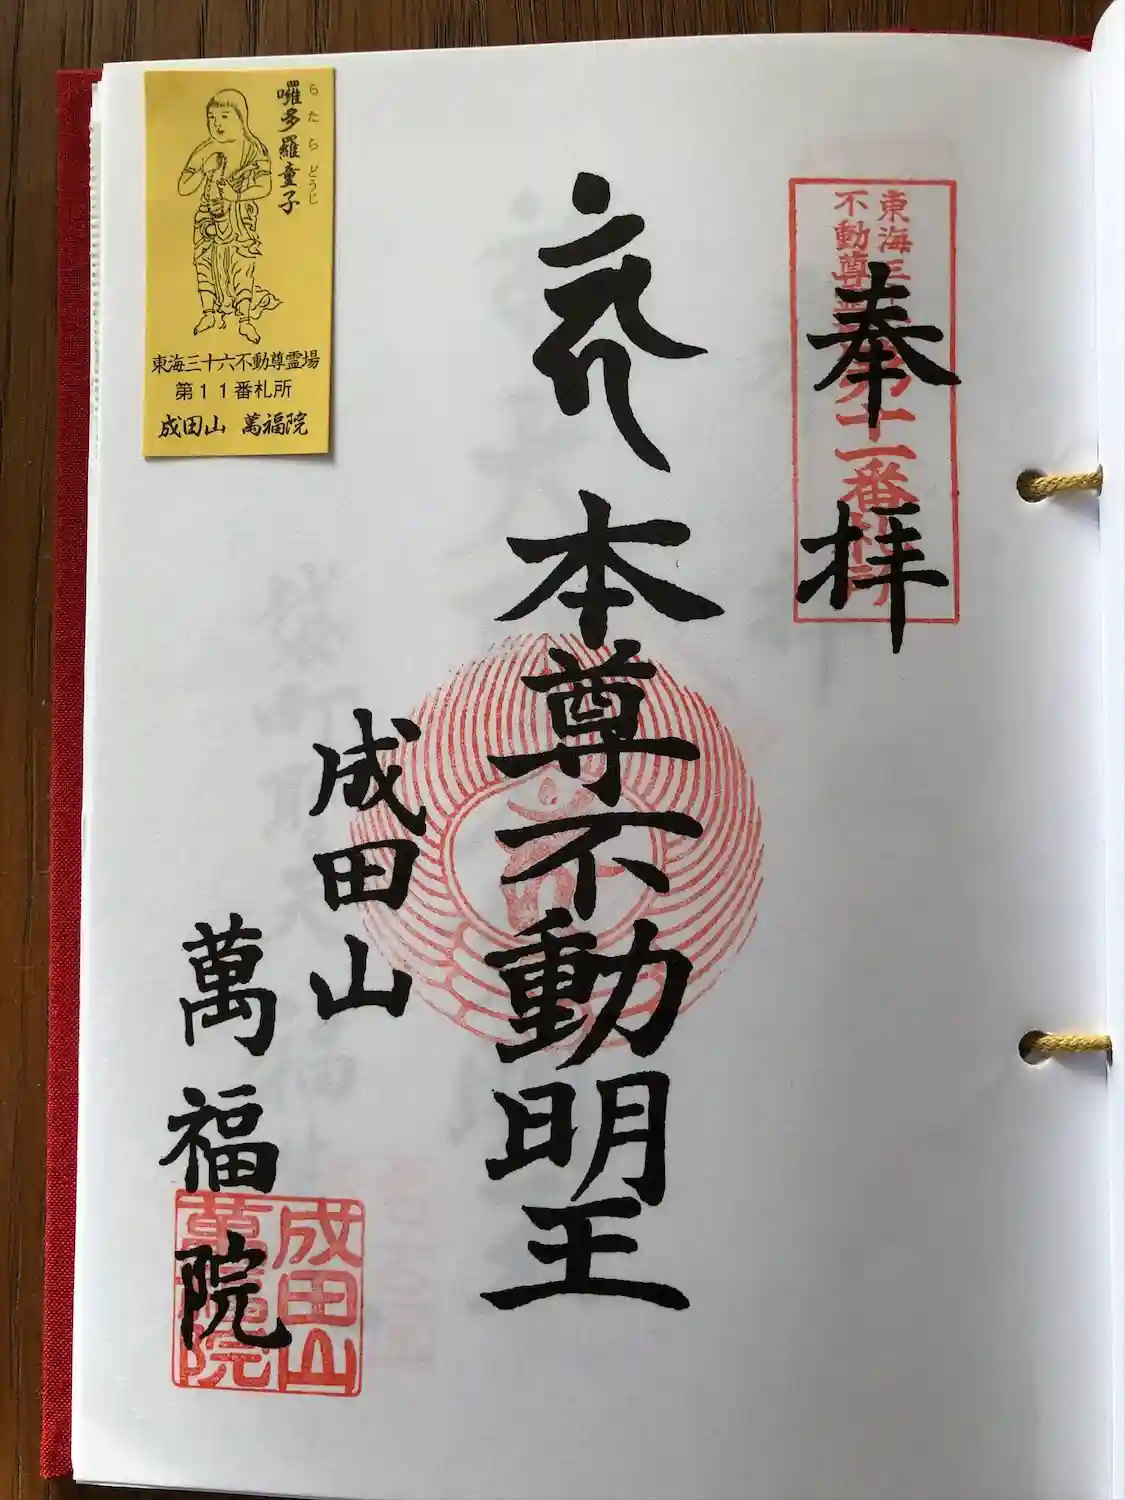 東海三十六
不動尊霊場
第十一番札所
奉拝
本尊不動明王
成田山
萬福院
成田山
萬福院
囉多羅童子
らたらどうじ
東海三十六不動尊霊場
第11番札所
成田山 萬福院